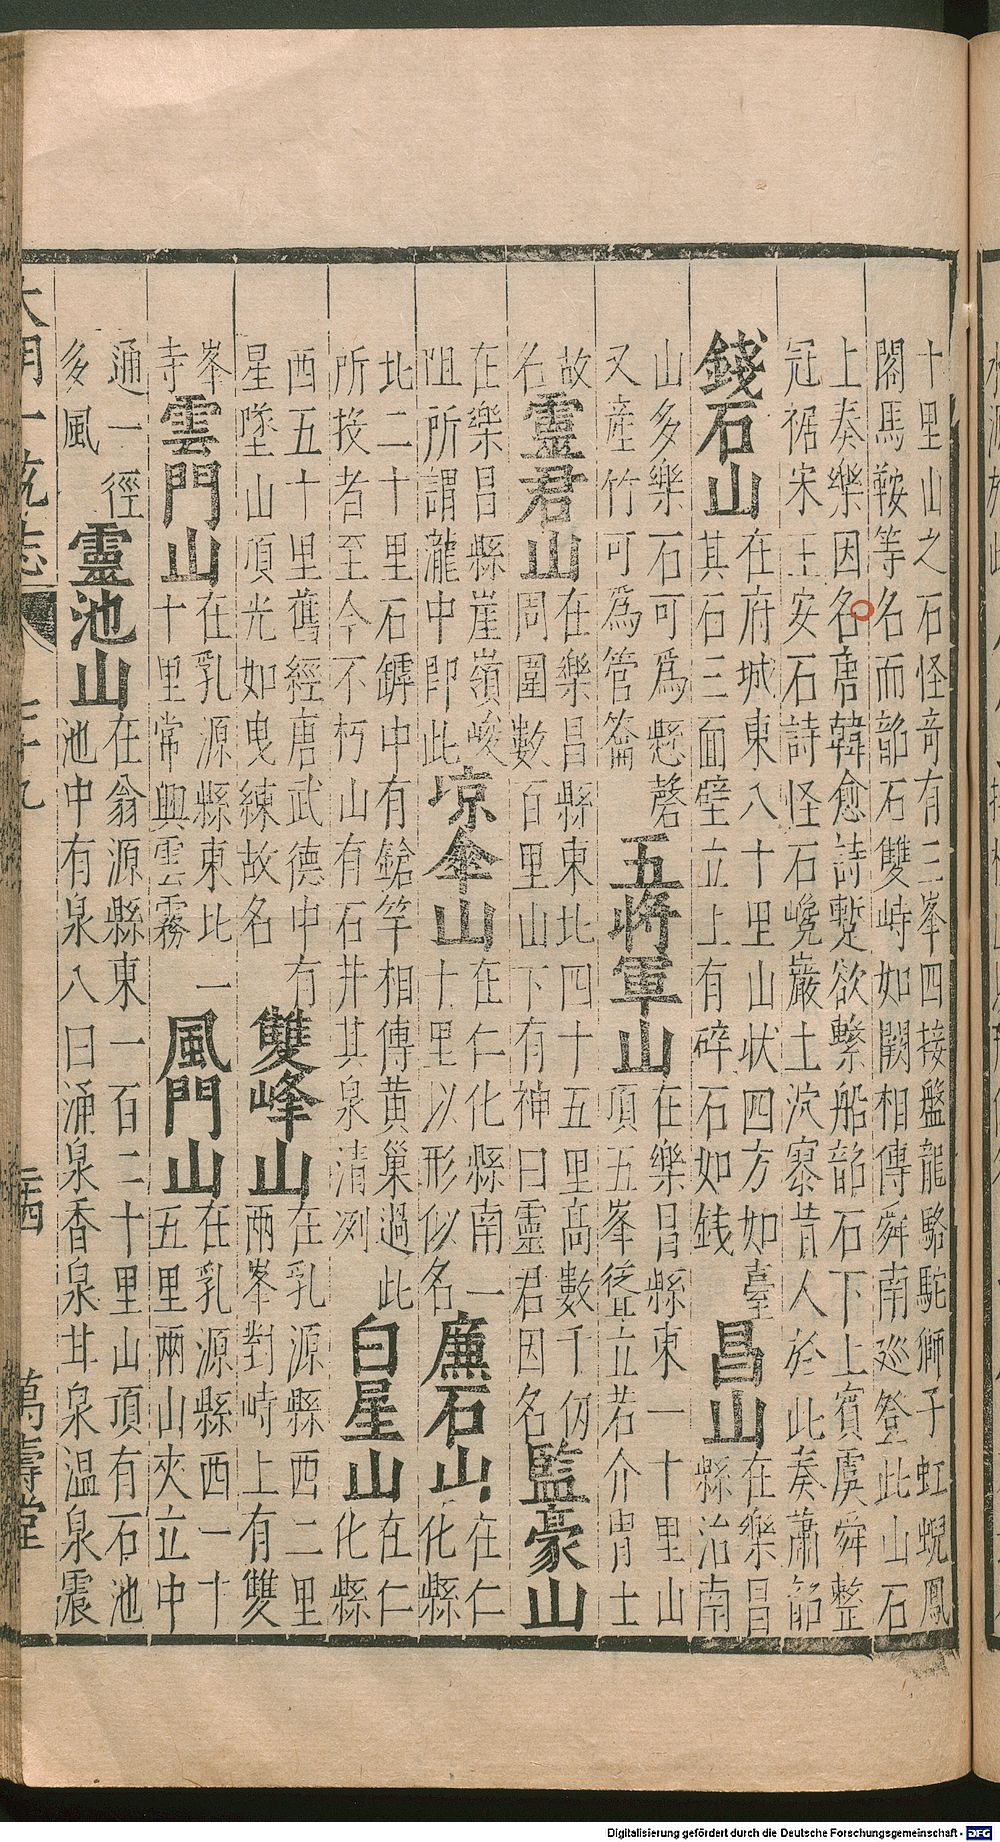 十里山之石怪奇有三峯四接盤龍駱駝獅子虹蜺鳳
閣馬鞍等名而韶石雙峙如闕相傳舜南巡登此山石
上奏樂因名唐韓愈詩蹔欲繫船韶石下上賓虞舜整
冠裾宋王安石詩怪石巉巖土泬寥昔人於此奏簫韶
錢石山
在府城東八十里山状四方如臺
其石三面壁立上有碎石如銭
昌山
在樂昌
縣治南
山多樂石可為懸磬
又產竹可爲管籥
五將軍山
在樂昌縣東一十里山
項五峯竝立若介冑士
故
名
靈君山
在樂昌縣東北四十五里髙數千仞
周圍數百里山下有神曰靈君因名
監豪山
在樂昌縣崖嶺峻
阻所謂瀧中即此
凉傘山
在仁化縣南一
十里以形似名
廉石山
在仁
化縣
北二十里石罅中有鎗竿相傳黄巢過此
所㧞者至今不朽山有石井其泉清冽
白星山
在仁
化縣
西五十里舊經唐武德中有
星墜山項光如曳練故名
雙峰山
在乳源縣西二里
兩峯對峙上有雙
峯
寺
雲門山
在乳源縣東比一
十里常興雲霧
風門山
在乳源縣西一十
五里兩山夾立中
通一徑
多風
靈池山
在翁源縣東一百二十里山頂有石池
池中有泉八曰涌泉香泉甘泉温泉震
大明一統志
萬壽堂
Digitalisierung gefördert durch die Deutsche Forschungsgemeinschaft - DFG